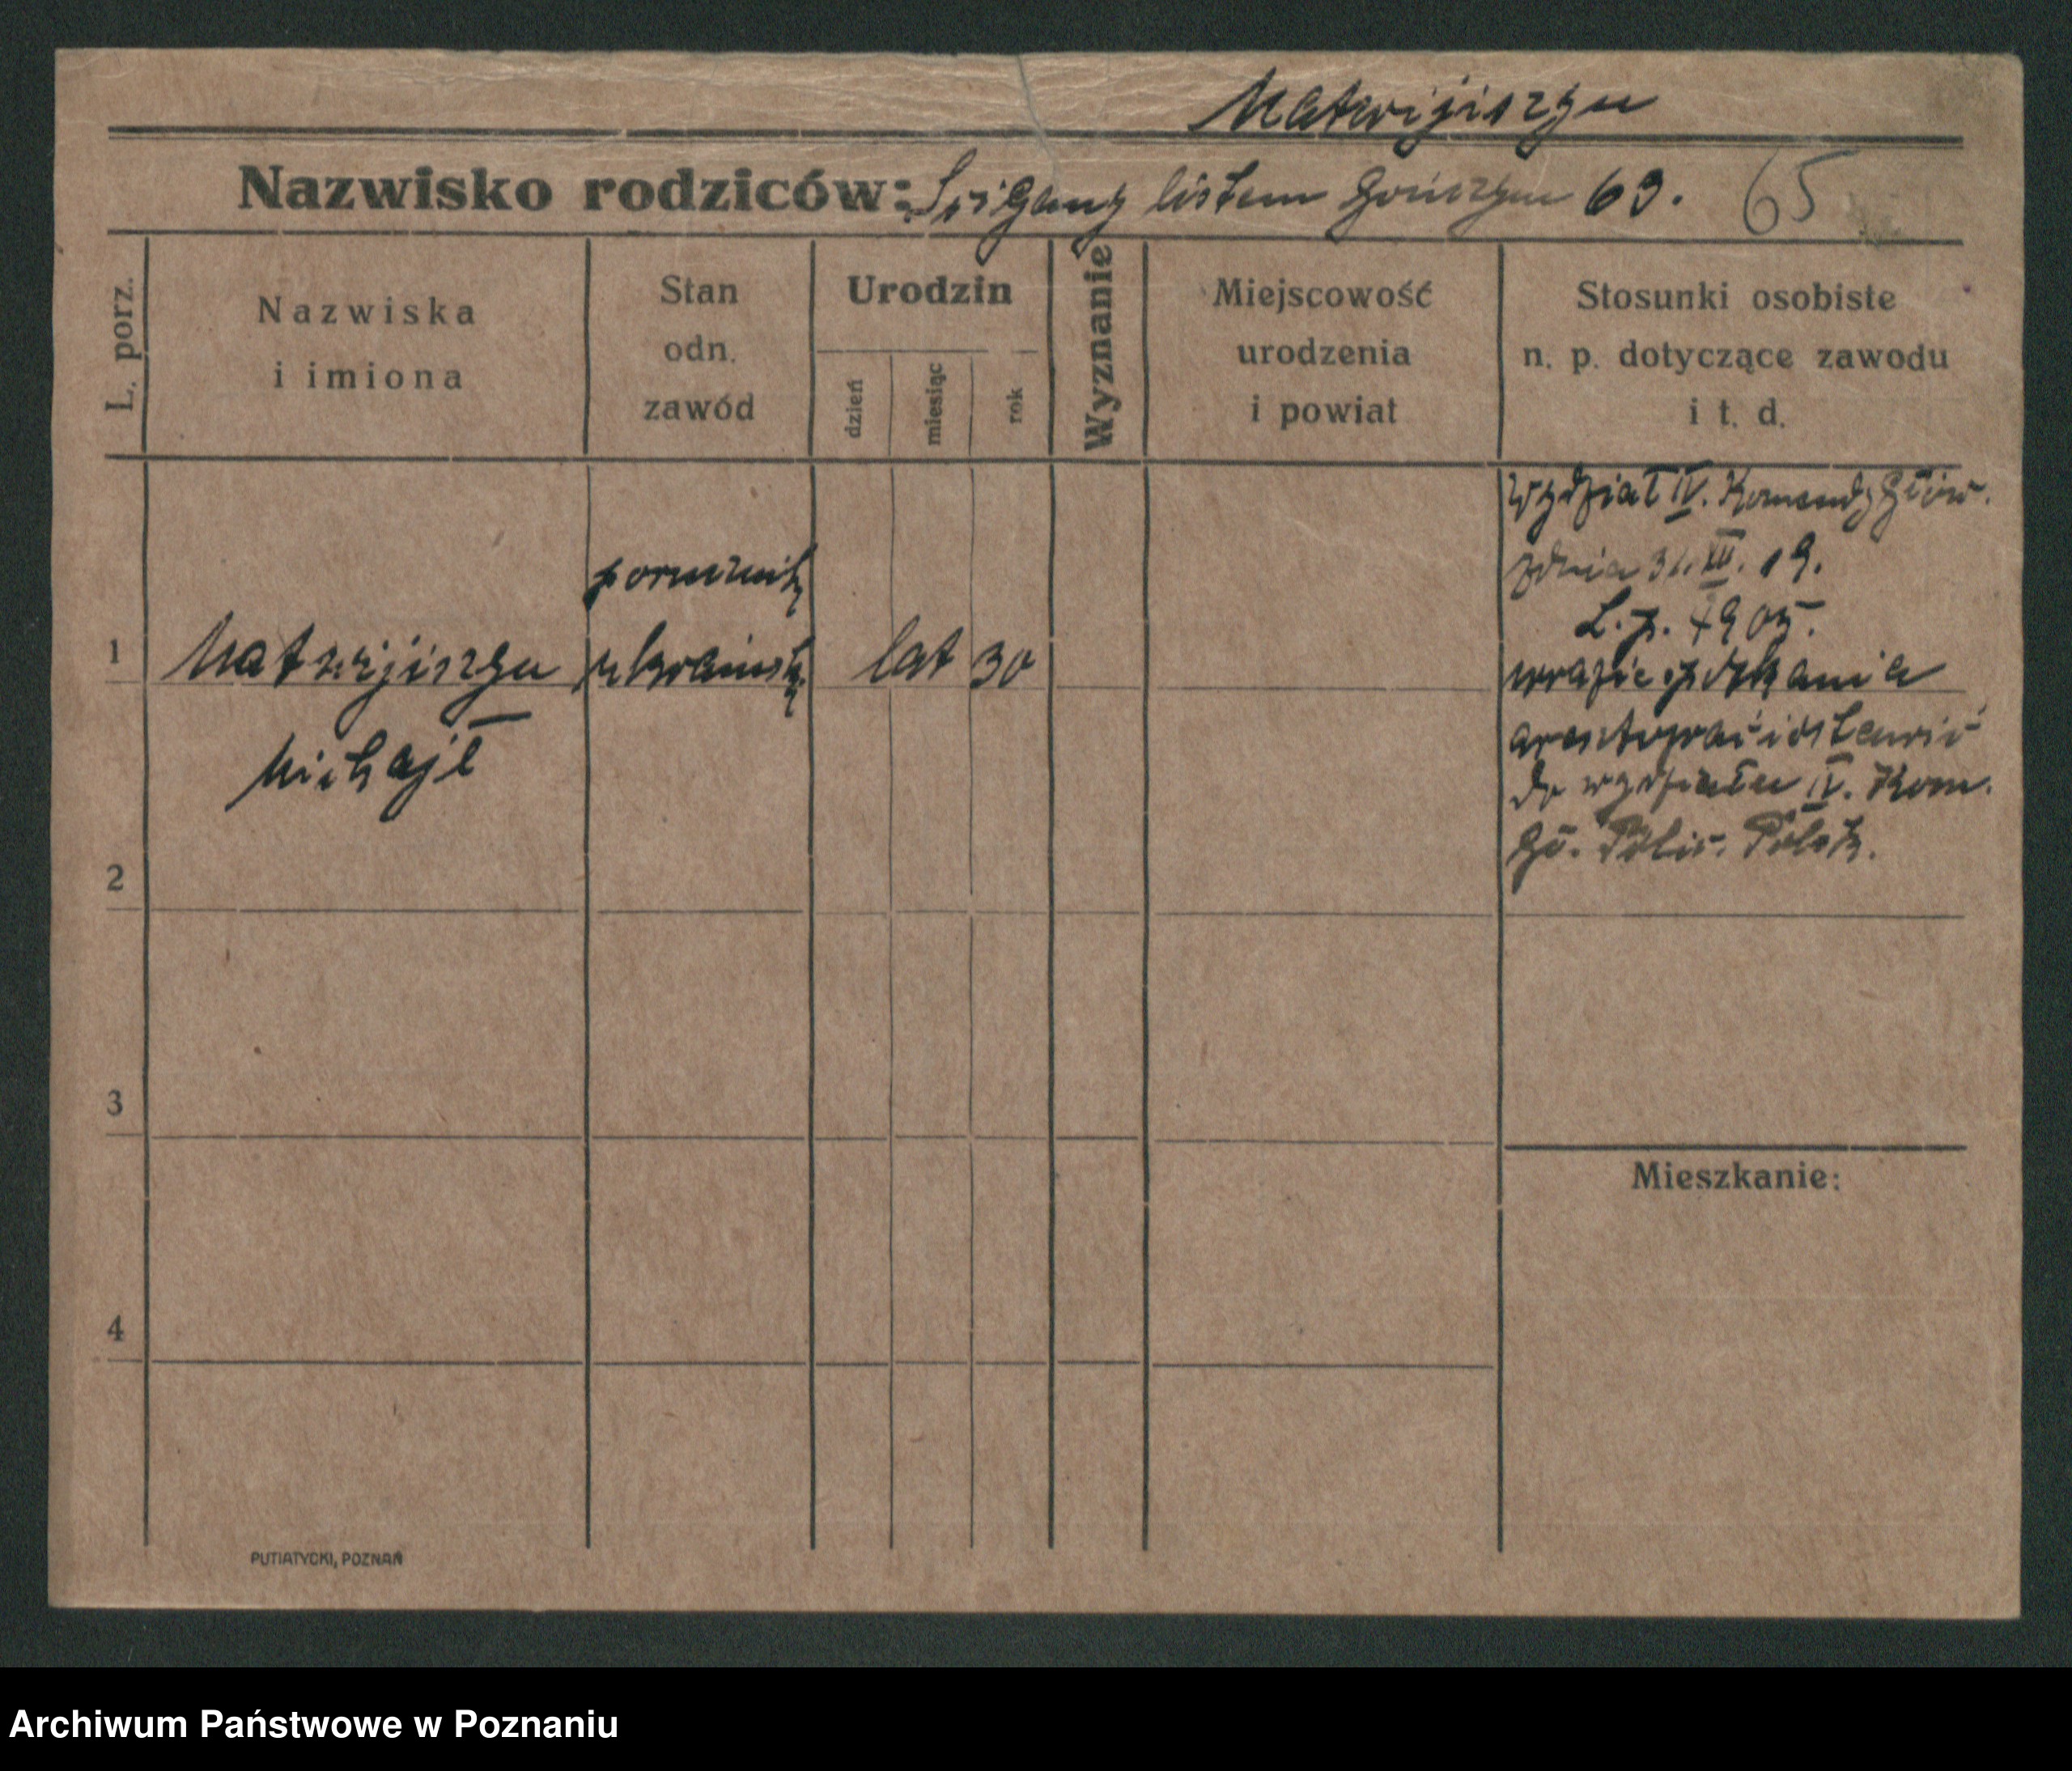 Matwijiszyn
Nazwisko rodziców: Ścigany listem gończym 69. 65
L. porz.
Nazwiska
i imiona
Stan
odn.
zawód
Urodzin
dzień
miesiąc
rok
Wyznanie
Miejscowość
urodzenia
i powiat
Stosunki osobiste
n. p. dotyczące zawodu
i t. d.
1
Matwijiszyn
Michajł
porucznik
ukraińsk.
lat 30
Wydział IV. Komendy Głów.
z dnia 31. XII. 19.
L. p. 4905.
w razie spotkania
aresztować i odstawić
do wydziału IV. Kom.
Gł. Policj. Polsk.
2
3
4
Mieszkanie:
PUTIATYCKI, POZNAŃ
Archiwum Państwowe w Poznaniu